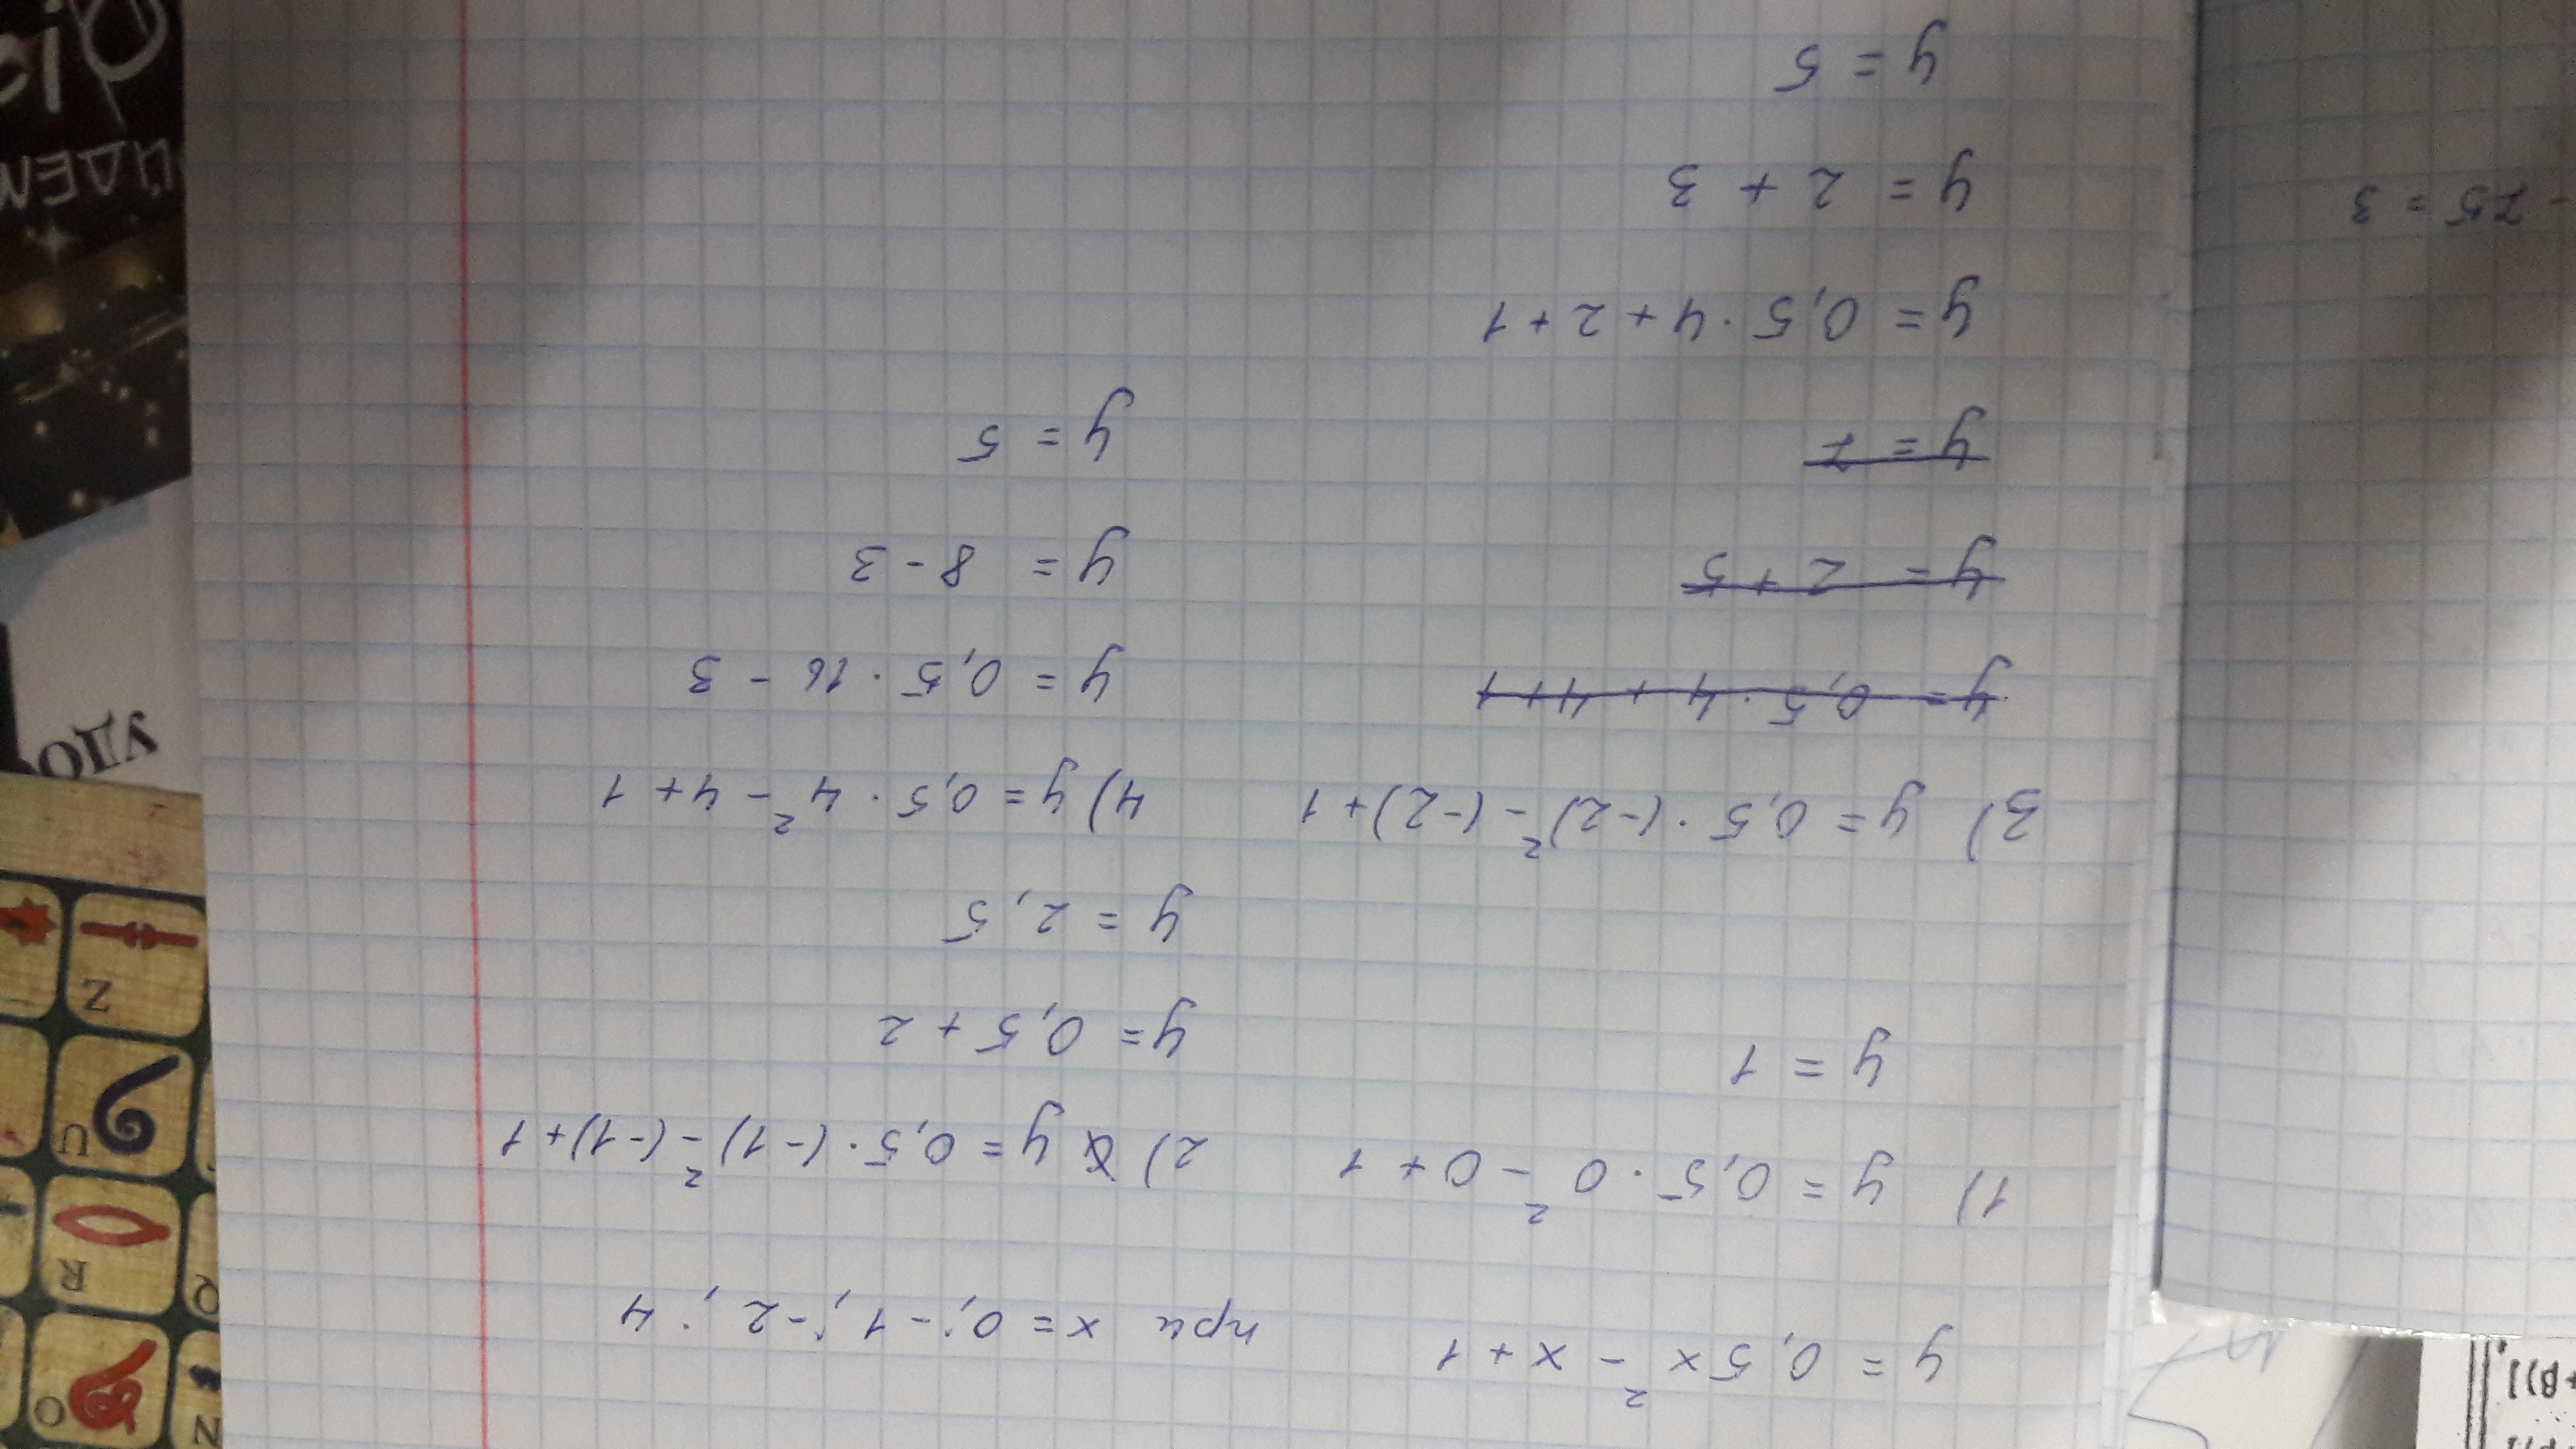 y = 0,5x² - x + 1 при x = 0; -1; -2; 4
1) y = 0,5 · 0² - 0 + 1
y = 1
2) y = 0,5 · (-1)² - (-1) + 1
y = 0,5 + 2
y = 2,5
3) y = 0,5 · (-2)² - (-2) + 1
y = 0,5 · 4 + 4 + 1
y = 2 + 5
y = 7
y = 0,5 · 4 + 2 + 1
y = 2 + 3
y = 5
4) y = 0,5 · 4² - 4 + 1
y = 0,5 · 16 - 3
y = 8 - 3
y = 5
- 75 = 3
N
O
Q
R
U
Z
УДО